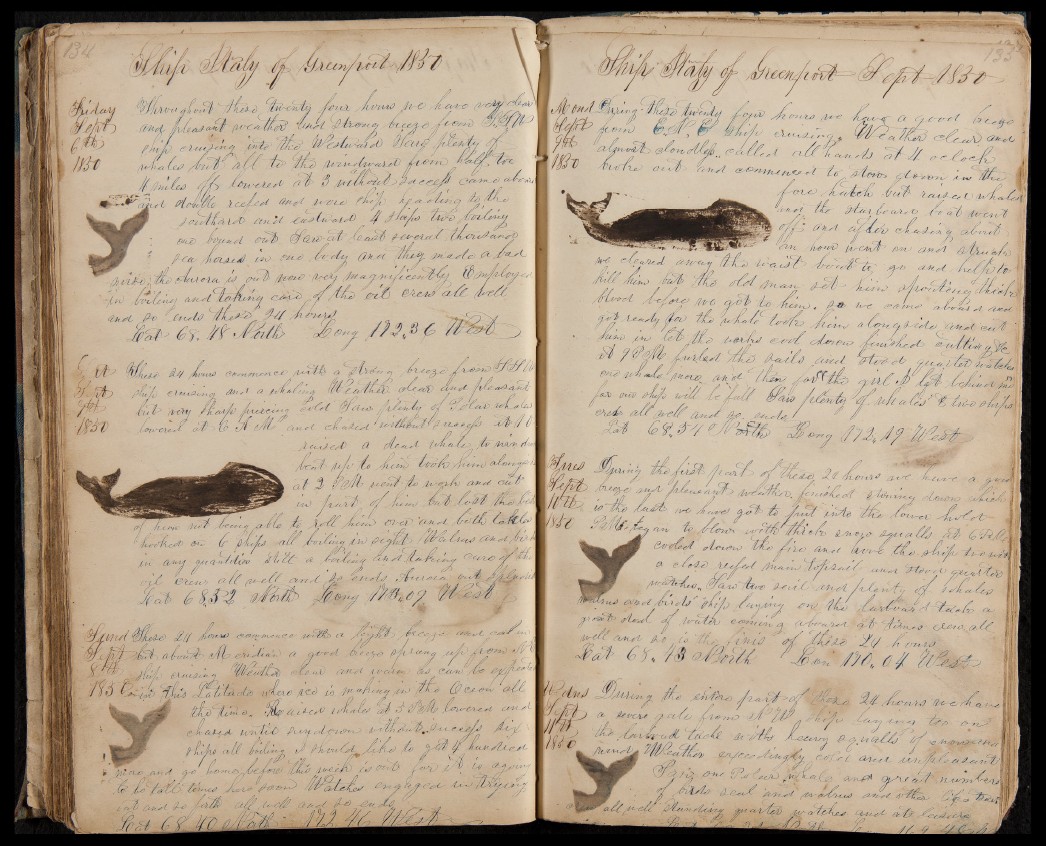 134
Ship Italy of Greenport 1850
Friday
Sept
6th
1850
Throughout these twenty four hours we have very clear
and pleasant weather and strong breeze from
ship cruising into the Westward Saw plenty of
whales but all to the windward from half to
4 miles off lowered at 3 without success came aboard
and double reefed and wore ship heading to the
southard and eastward 4 ships two boiling
one bound out Saw at least several thousand
sea horses in one body and they made a bad
noise, the aurora is out now very magnificently Employed
in boiling and taking care of the oil crew all well
and so ends these 24 hours
Lat 68.48 North Long 172.36 West
Sept
7th
1850
These 24 hours commence with a strong breeze from
ship cruising and a whaling Weather clear and pleasant
but very sharp piercing cold Saw plenty of Polar whales
lowered at and chased without success at 10
raised a dead whale to windward
beat up to him took him alongside
at 2 PM went to work and cut
in part of him but lost the
of him not being able to roll him over and both tackles
hooked on 6 ships all boiling in sight Walrus and birds
in any quantities Still a boiling and taking care of the
oil Crew all well and so ends Aurora out
Lat 68.32 North Long 09 West
Sund
Sept
8th
1850
These 24 hours commence with a light breeze and calm
but about Meridian a good breeze sprang up from
ship cruising Weather clear and warm as can be expected
in this Latitude where ice is making in the Ocean all
the time. Raised whales at 5 PM lowered and
chased until sundown without success six
ships all boiling I should like to get 4 hundred
more and go home before this week is out for it is
to be tall times here soon Watches engaged in trying
out and so forth all well and so ends
Lat 68.40 North 172.46 West
135
Ship Italy of Greenport Sept 1850
Mond
Sept
9th
1850
During these twenty four hours we have a good breeze
from E.N.E ship cruising. Weather clear and
almost cloudless. called all hands at 4 oclock
broke out and commenced to stow down in the
fore hatch but raised whales
and the starboard boat went
off and after chasing about
an hour went on and struck
we cleared away the waist boat to go and help to
kill him but the old man set him spouting thick
blood before we got to him. so we came aboard and
got ready for the whale took him alongside and cut
him in let the works cool down finished cutting &c
at 9 PM furled the sails and stood quarter watches
one whale more and then for the girls left behind us
for our ship will be full Saw plenty of whales & two ships
crew all well and so ends
Lat 68.54 North Long 172.49 West
Tues
Sept
10th
1850
During the first part of these 24 hours we have a good
breeze and pleasant weather, finished stowing down which
is the last we have got to put into the lower hold
PM began to blow with thick snow squalls at 6 PM
cooled down the fire and hove the ship to under
a close reefed main topsail and stood quarter
watches. Saw two sail and plenty of whales
walrus and birds ship laying on the larboard tack a
great deal of water coming aboard at times crew all
well and so is the finis of these 24 hours
Lat 68.43 North Lon 170.04 West
Wedns
Sept
11th
1850
During the entire part of these 24 hours we have
a severe gale from N W ship laying too on
the larboard tack with heavy squalls of snow and
wind Weather exceedingly cold and unpleasant
Spy one Polar whale and great numbers
of birds seal and walrus and other
all well standing quarter watches and at leisure